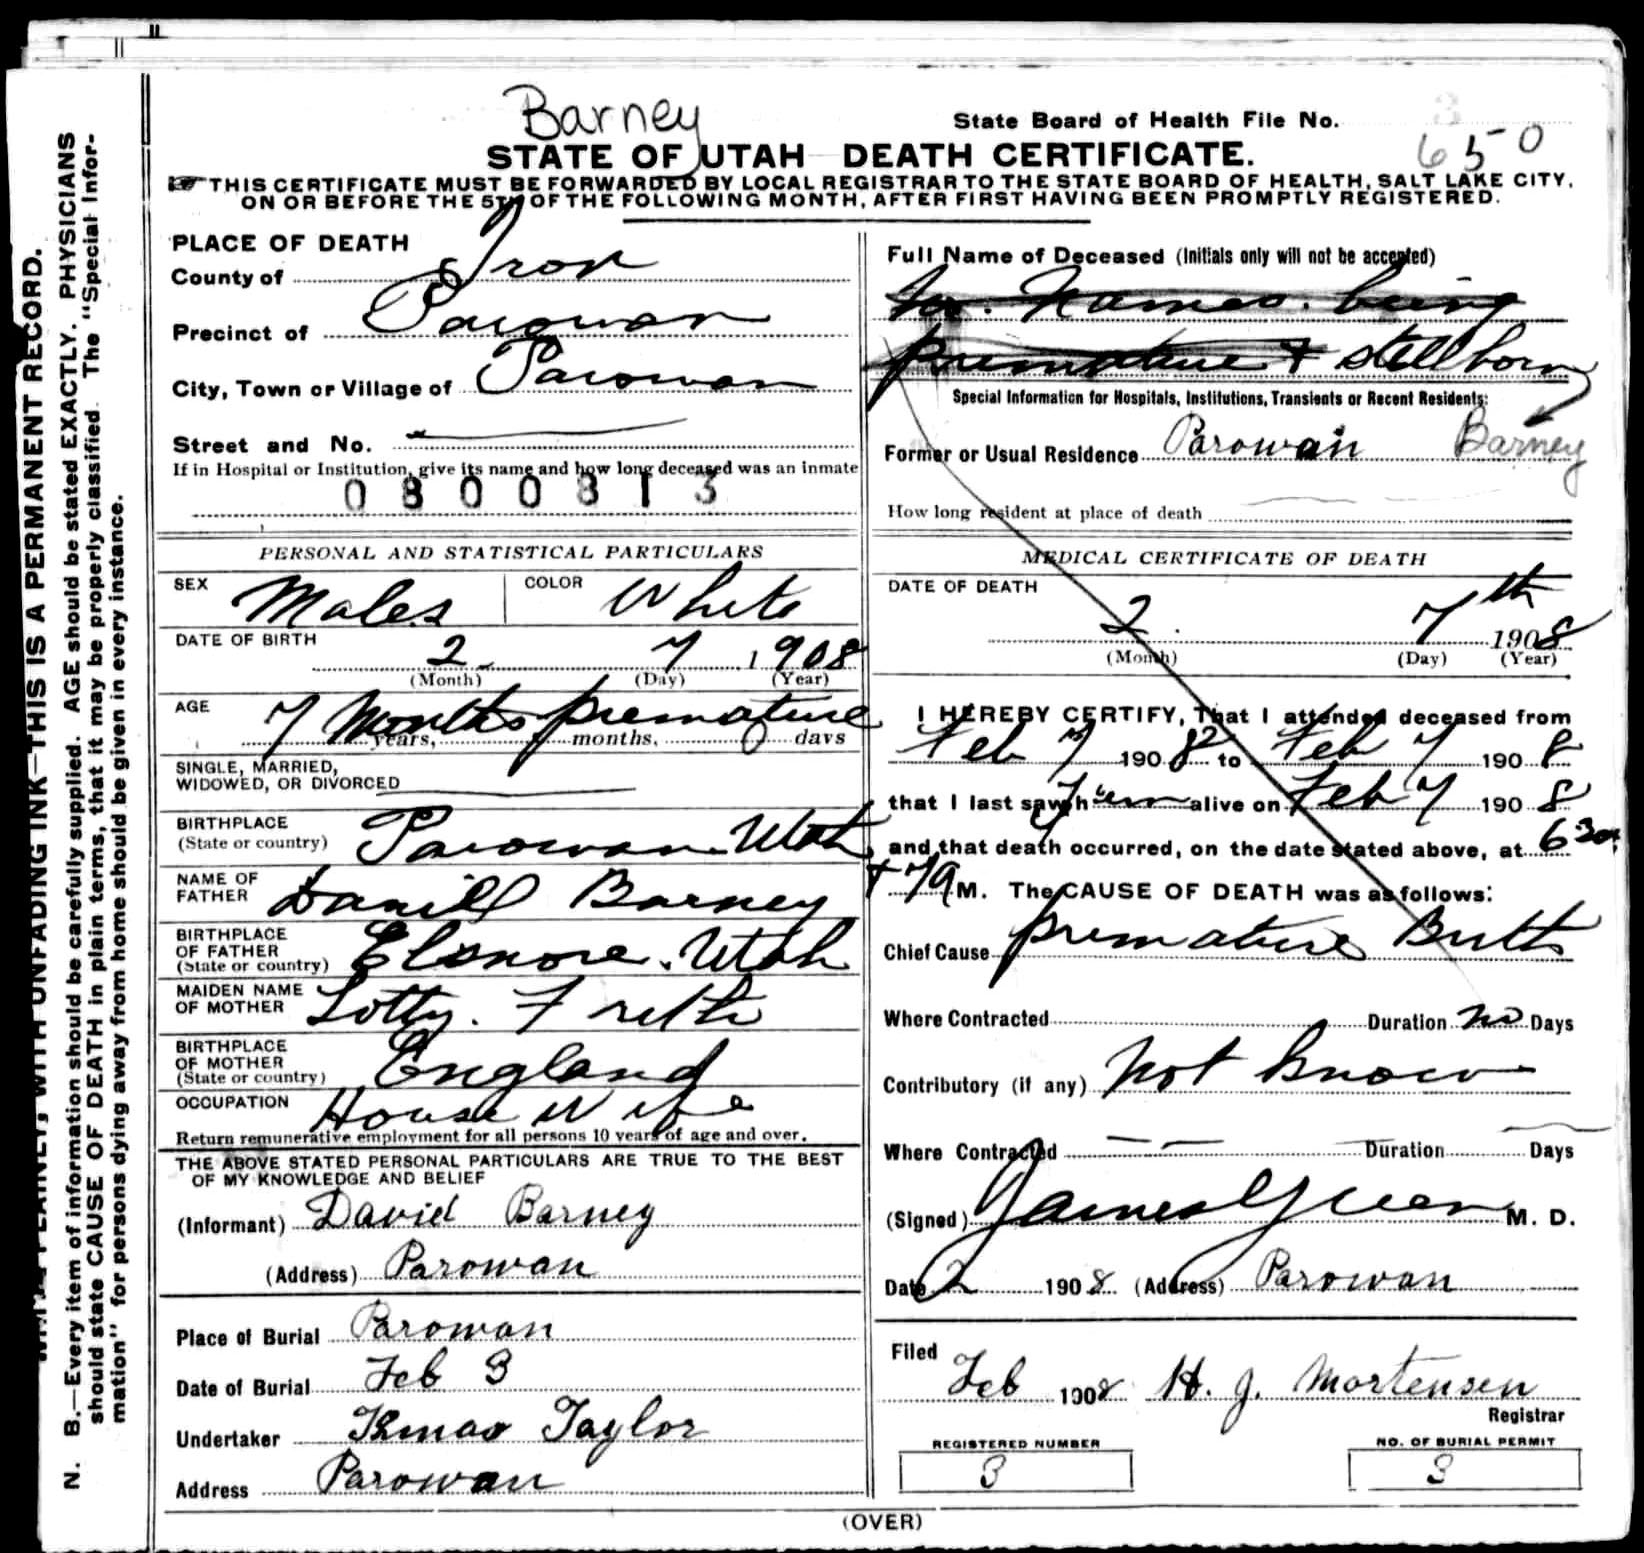 Barney
State Board of Health File No. 650
STATE OF UTAH DEATH CERTIFICATE.
THIS CERTIFICATE MUST BE FORWARDED BY LOCAL REGISTRAR TO THE STATE BOARD OF HEALTH, SALT LAKE CITY,
ON OR BEFORE THE 5TH OF THE FOLLOWING MONTH, AFTER FIRST HAVING BEEN PROMPTLY REGISTERED.
PLACE OF DEATH
County of Iron
Precinct of Parowan
City, Town or Village of Parowan
Street and No.
If in Hospital or Institution, give its name and how long deceased was an inmate
0800313
PERSONAL AND STATISTICAL PARTICULARS
SEX Males COLOR White
DATE OF BIRTH
2 7 1908
(Month) (Day) (Year)
AGE 7 Months premature
years, months, days
SINGLE, MARRIED,
WIDOWED, OR DIVORCED
BIRTHPLACE
(State or country) Parowan Utah
NAME OF
FATHER Daniel Barney
BIRTHPLACE
OF FATHER
(State or country) Elsnore. Utah
MAIDEN NAME
OF MOTHER Lotty.
BIRTHPLACE
OF MOTHER
(State or country) England
OCCUPATION House Wife
Return remunerative employment for all persons 10 years of age and over.
THE ABOVE STATED PERSONAL PARTICULARS ARE TRUE TO THE BEST
OF MY KNOWLEDGE AND BELIEF
(Informant) David Barney
(Address) Parowan
Place of Burial Parowan
Date of Burial Feb 8
Undertaker Taylor
Address Parowan
Full Name of Deceased (Initials only will not be accepted)
Names. being
premature & stillborn
Special Information for Hospitals, Institutions, Transients or Recent Residents:
Former or Usual Residence Parowan Barney
How long resident at place of death
MEDICAL CERTIFICATE OF DEATH
DATE OF DEATH
2. 7th 1908
(Month) (Day) (Year)
I HEREBY CERTIFY, That I attended deceased from
Feb 7 1908 to Feb 7 1908
that I last saw h alive on Feb 7 1908
and that death occurred, on the date stated above, at 6 30
& 7 A M. The CAUSE OF DEATH was as follows:
Chief Cause premature Birth
Where Contracted Duration no Days
Contributory (if any) Not Know
Where Contracted Duration Days
(Signed) James Green M. D.
Date 2 1908 (Address) Parowan
Filed Feb 1908 H. J. Mortensen
Registrar
REGISTERED NUMBER
3
NO. OF BURIAL PERMIT
3
(OVER)
N. B.—Every item of information should be carefully supplied. AGE should be stated EXACTLY. PHYSICIANS
should state CAUSE OF DEATH in plain terms, that it may be properly classified. The "Special Infor-
mation" for persons dying away from home should be given in every instance.
WRITE PLAINLY, WITH UNFADING INK—THIS IS A PERMANENT RECORD.